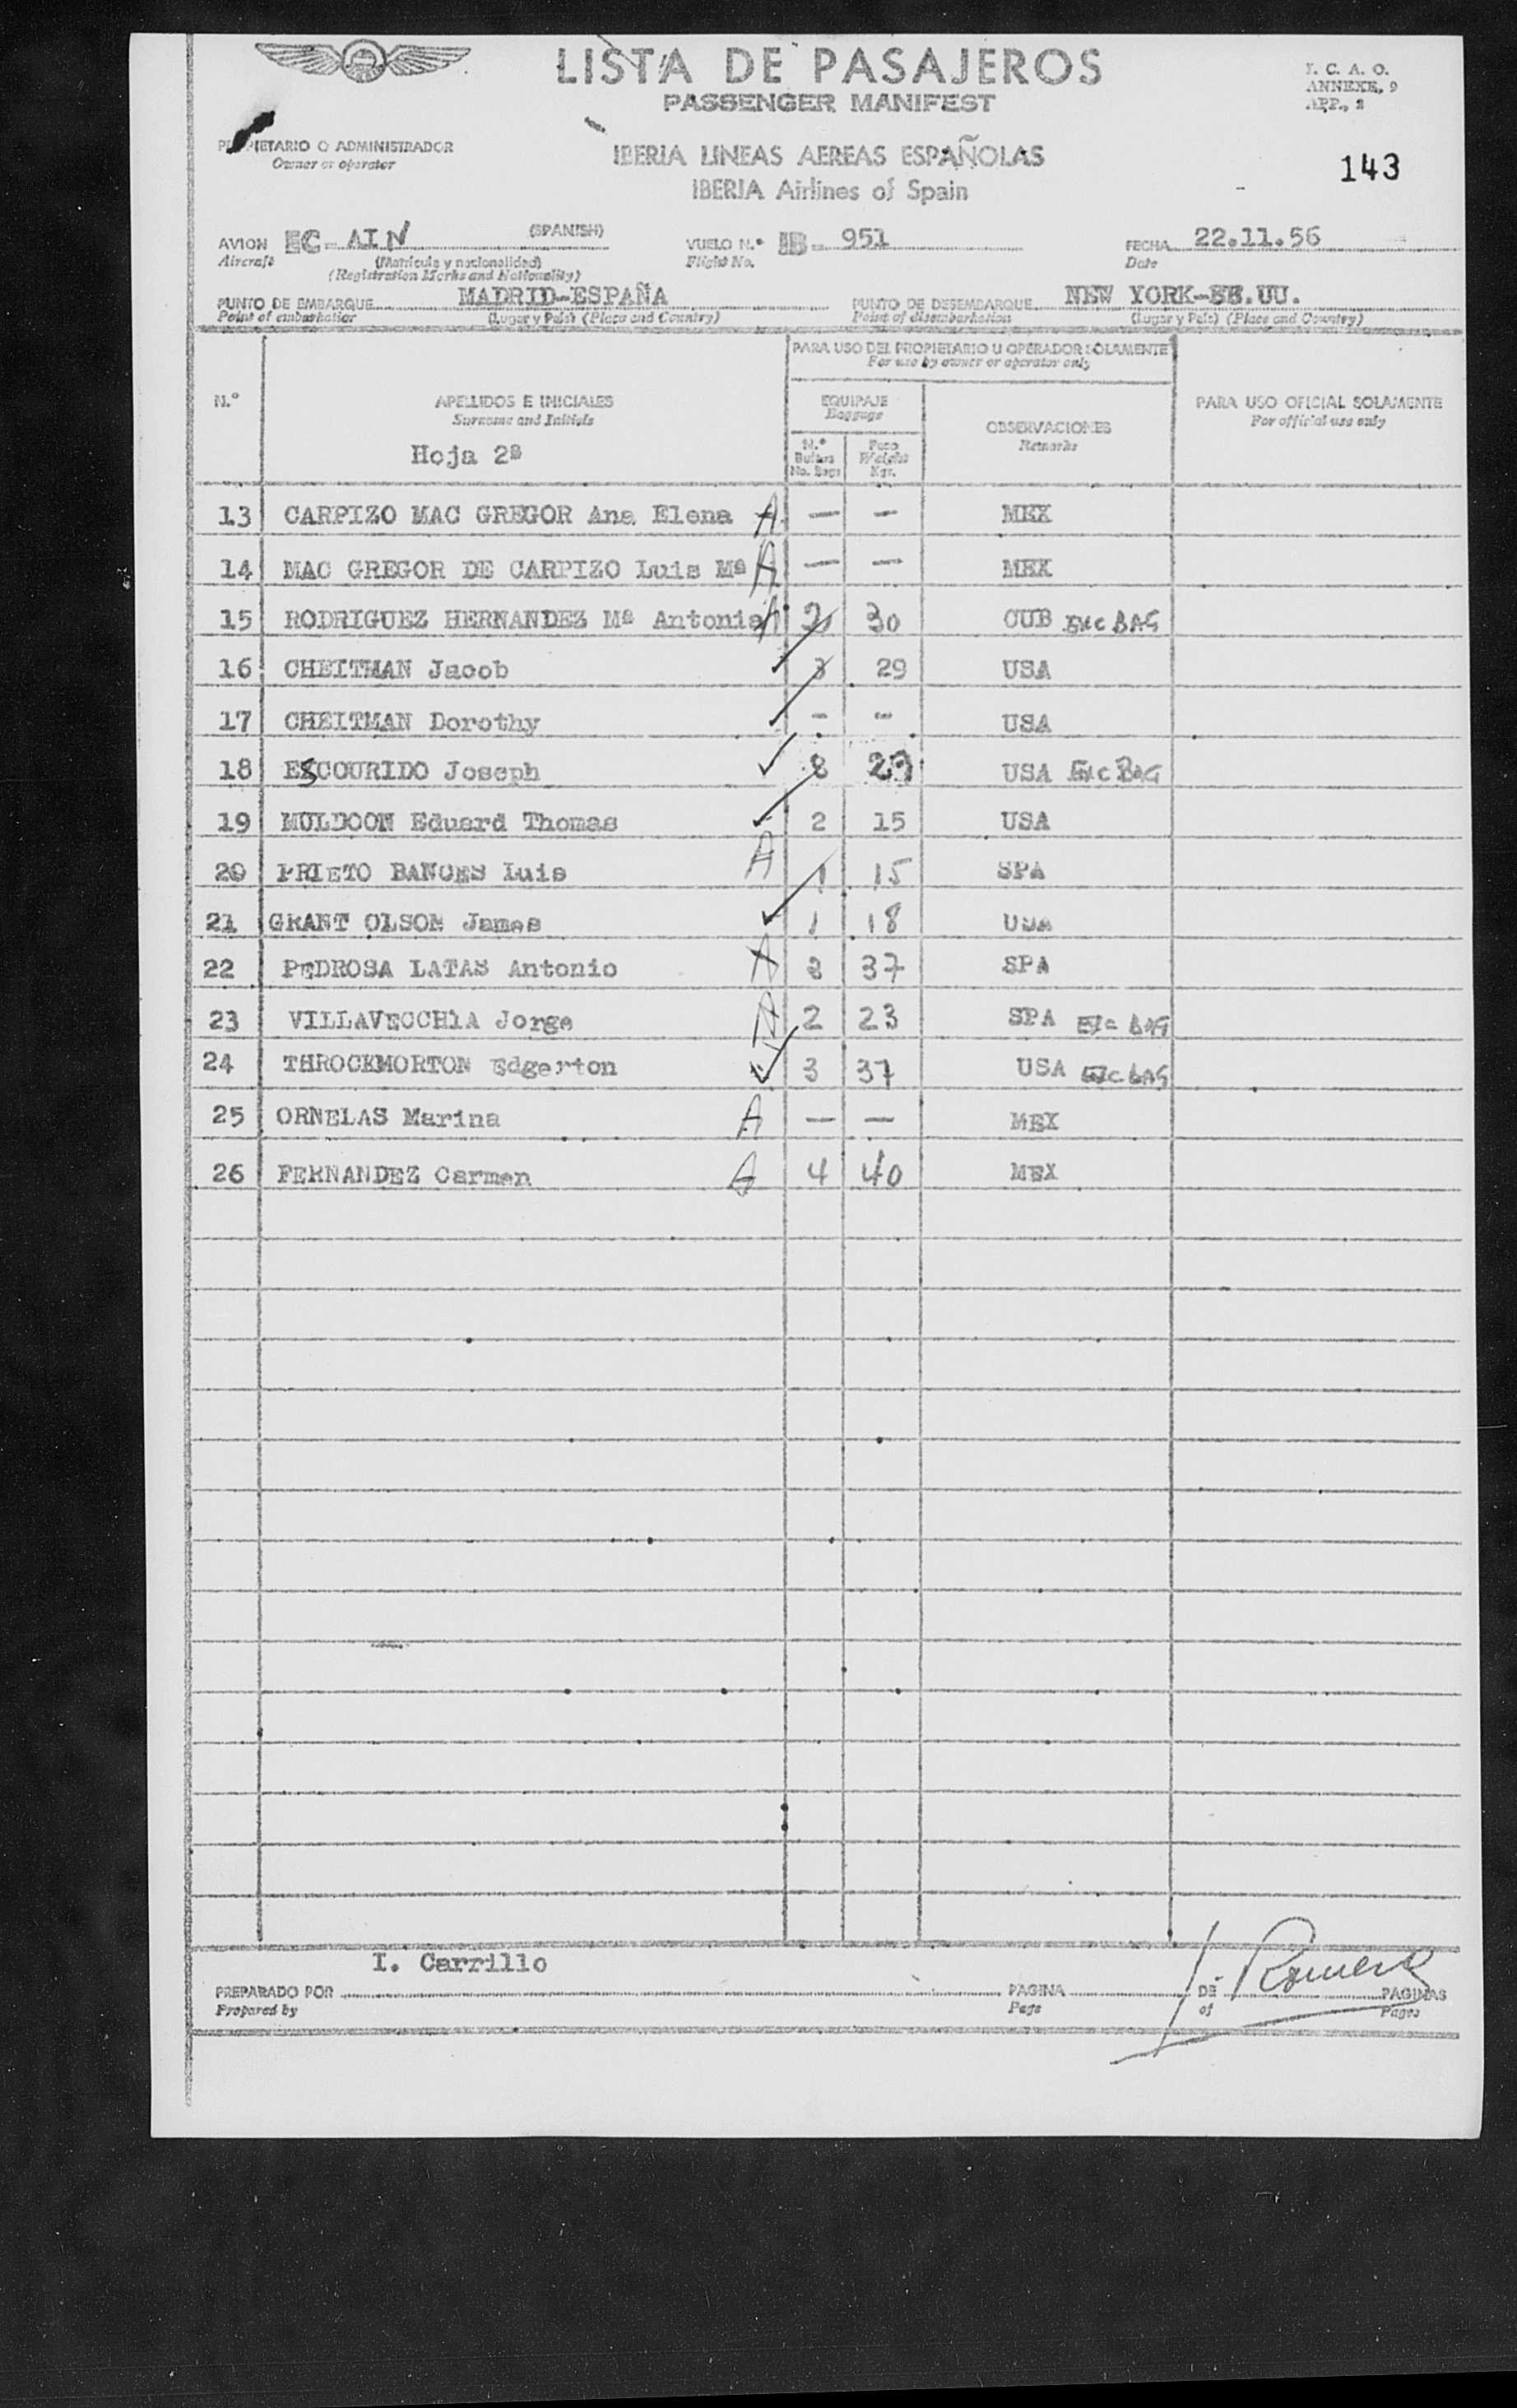 LISTA DE PASAJEROS
PASSENGER MANIFEST
I. C. A. O.
ANNEXE, 9
APP., 2
PROPIETARIO O ADMINISTRADOR
Owner or operator
IBERIA LINEAS AEREAS ESPAÑOLAS
IBERIA Airlines of Spain
143
AVION EC-AIN (SPANISH) VUELO N.º IB- 951 FECHA 22.11.56
Aircraft (Matrícula y nacionalidad) Flight No. Date
(Registration Marks and Nationality)
PUNTO DE EMBARQUE MADRID-ESPAÑA PUNTO DE DESEMBARQUE NEW YORK-EE.UU.
Point of embarkation (Lugar y País) (Place and Country) Point of disembarkation (Lugar y País) (Place and Country)
PARA USO DEL PROPIETARIO U OPERADOR SOLAMENTE
For use by owner or operator only
N.º APELLIDOS E INICIALES EQUIPAJE PARA USO OFICIAL SOLAMENTE
Surname and Initials Baggage For official use only
OBSERVACIONES
Remarks
Hoja 2ª
N.º Bultos Peso
No. Bags Weight Kgr.
13 CARPIZO MAC GREGOR Ana Elena A — — MEX
14 MAC GREGOR DE CARPIZO Luis Mª A — — MEX
15 RODRIGUEZ HERNANDEZ Mª Antonia A 2 30 CUB EXC BAG
16 CHEITMAN Jacob ✓ 3 29 USA
17 CHEITMAN Dorothy ✓ - - USA
18 ESCOURIDO Joseph ✓ 8 27 USA EXC BAG
19 MULDOON Eduard Thomas ✓ 2 15 USA
20 PRIETO BANCES Luis A 1 15 SPA
21 GRANT OLSON James ✓ 1 18 USA
22 PEDROSA LATAS Antonio A 2 37 SPA
23 VILLAVECCHIA Jorge A 2 23 SPA EXC BAG
24 THROCKMORTON Edgerton ✓ 3 37 USA EXC BAG
25 ORNELAS Marina A — — MEX
26 FERNANDEZ Carmen A 4 40 MEX
I. Carrillo
PREPARADO POR PAGINA DE PAGINAS
Prepared by Page of Pages